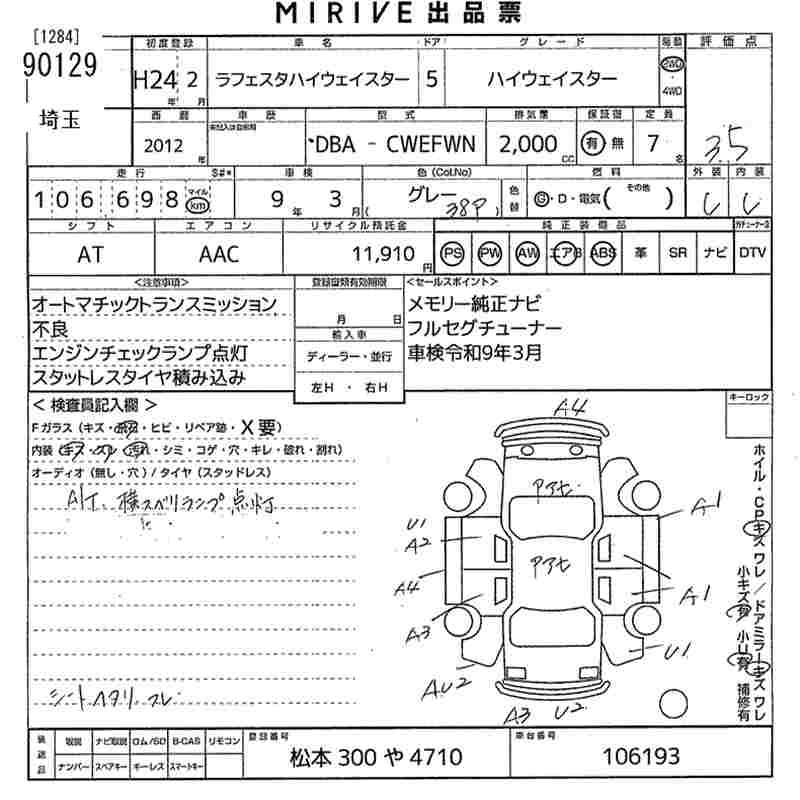 MIRIVE出品票
[1284]
90129
埼玉
初度登録 車名 ドア グレード 駆動 評価点
H24 2 ラフェスタハイウェイスター 5 ハイウェイスター 2WD
年 月 4WD
西暦 車歴 型式 排気量 保証書 定員
2012 年 DBA - CWEFWN 2,000 CC 有 無 7 名 3.5
走行 S#* 車検 色(Col.No) 燃料 外装 内装
106,698 マイル km 9 年 3 月 グレー ( 38P ) 色替 G・D・電気( その他 ) C C
シフト エアコン リサイクル預託金 純正装備品
AT AAC 11,910 円 PS PW AW エアB ABS 革 SR ナビ DTV
<注意事項> 登録書類有効期限 <セールスポイント>
オートマチックトランスミッション メモリー純正ナビ
不良 月 日 フルセグチューナー
エンジンチェックランプ点灯 輸入車 車検令和9年3月
スタットレスタイヤ積み込み ディーラー・並行
左H ・ 右H
<検査員記入欄> キーロック
Fガラス(キズ・飛石・ヒビ・リペア跡・X要)
内装(キズ・スレ・汚れ・シミ・コゲ・穴・キレ・破れ・割れ)
オーディオ(無し・穴)/タイヤ(スタッドレス)
A/T、横スベリランプ点灯
シートヘタリ、スレ
A4
アアセ
U1
A2
A1
アアセ
A4
A1
A3
U1
AU2
A3 U2
ホイル・CPキズワレ/ドアミラーキズワレ
小キズ有 小U有 補修有
後送品 取説 ナビ取説 ロム/SD B-CAS リモコン 登録番号 車台番号
ナンバー スペアキー キーレス スマートキー 松本 300 や 4710 106193